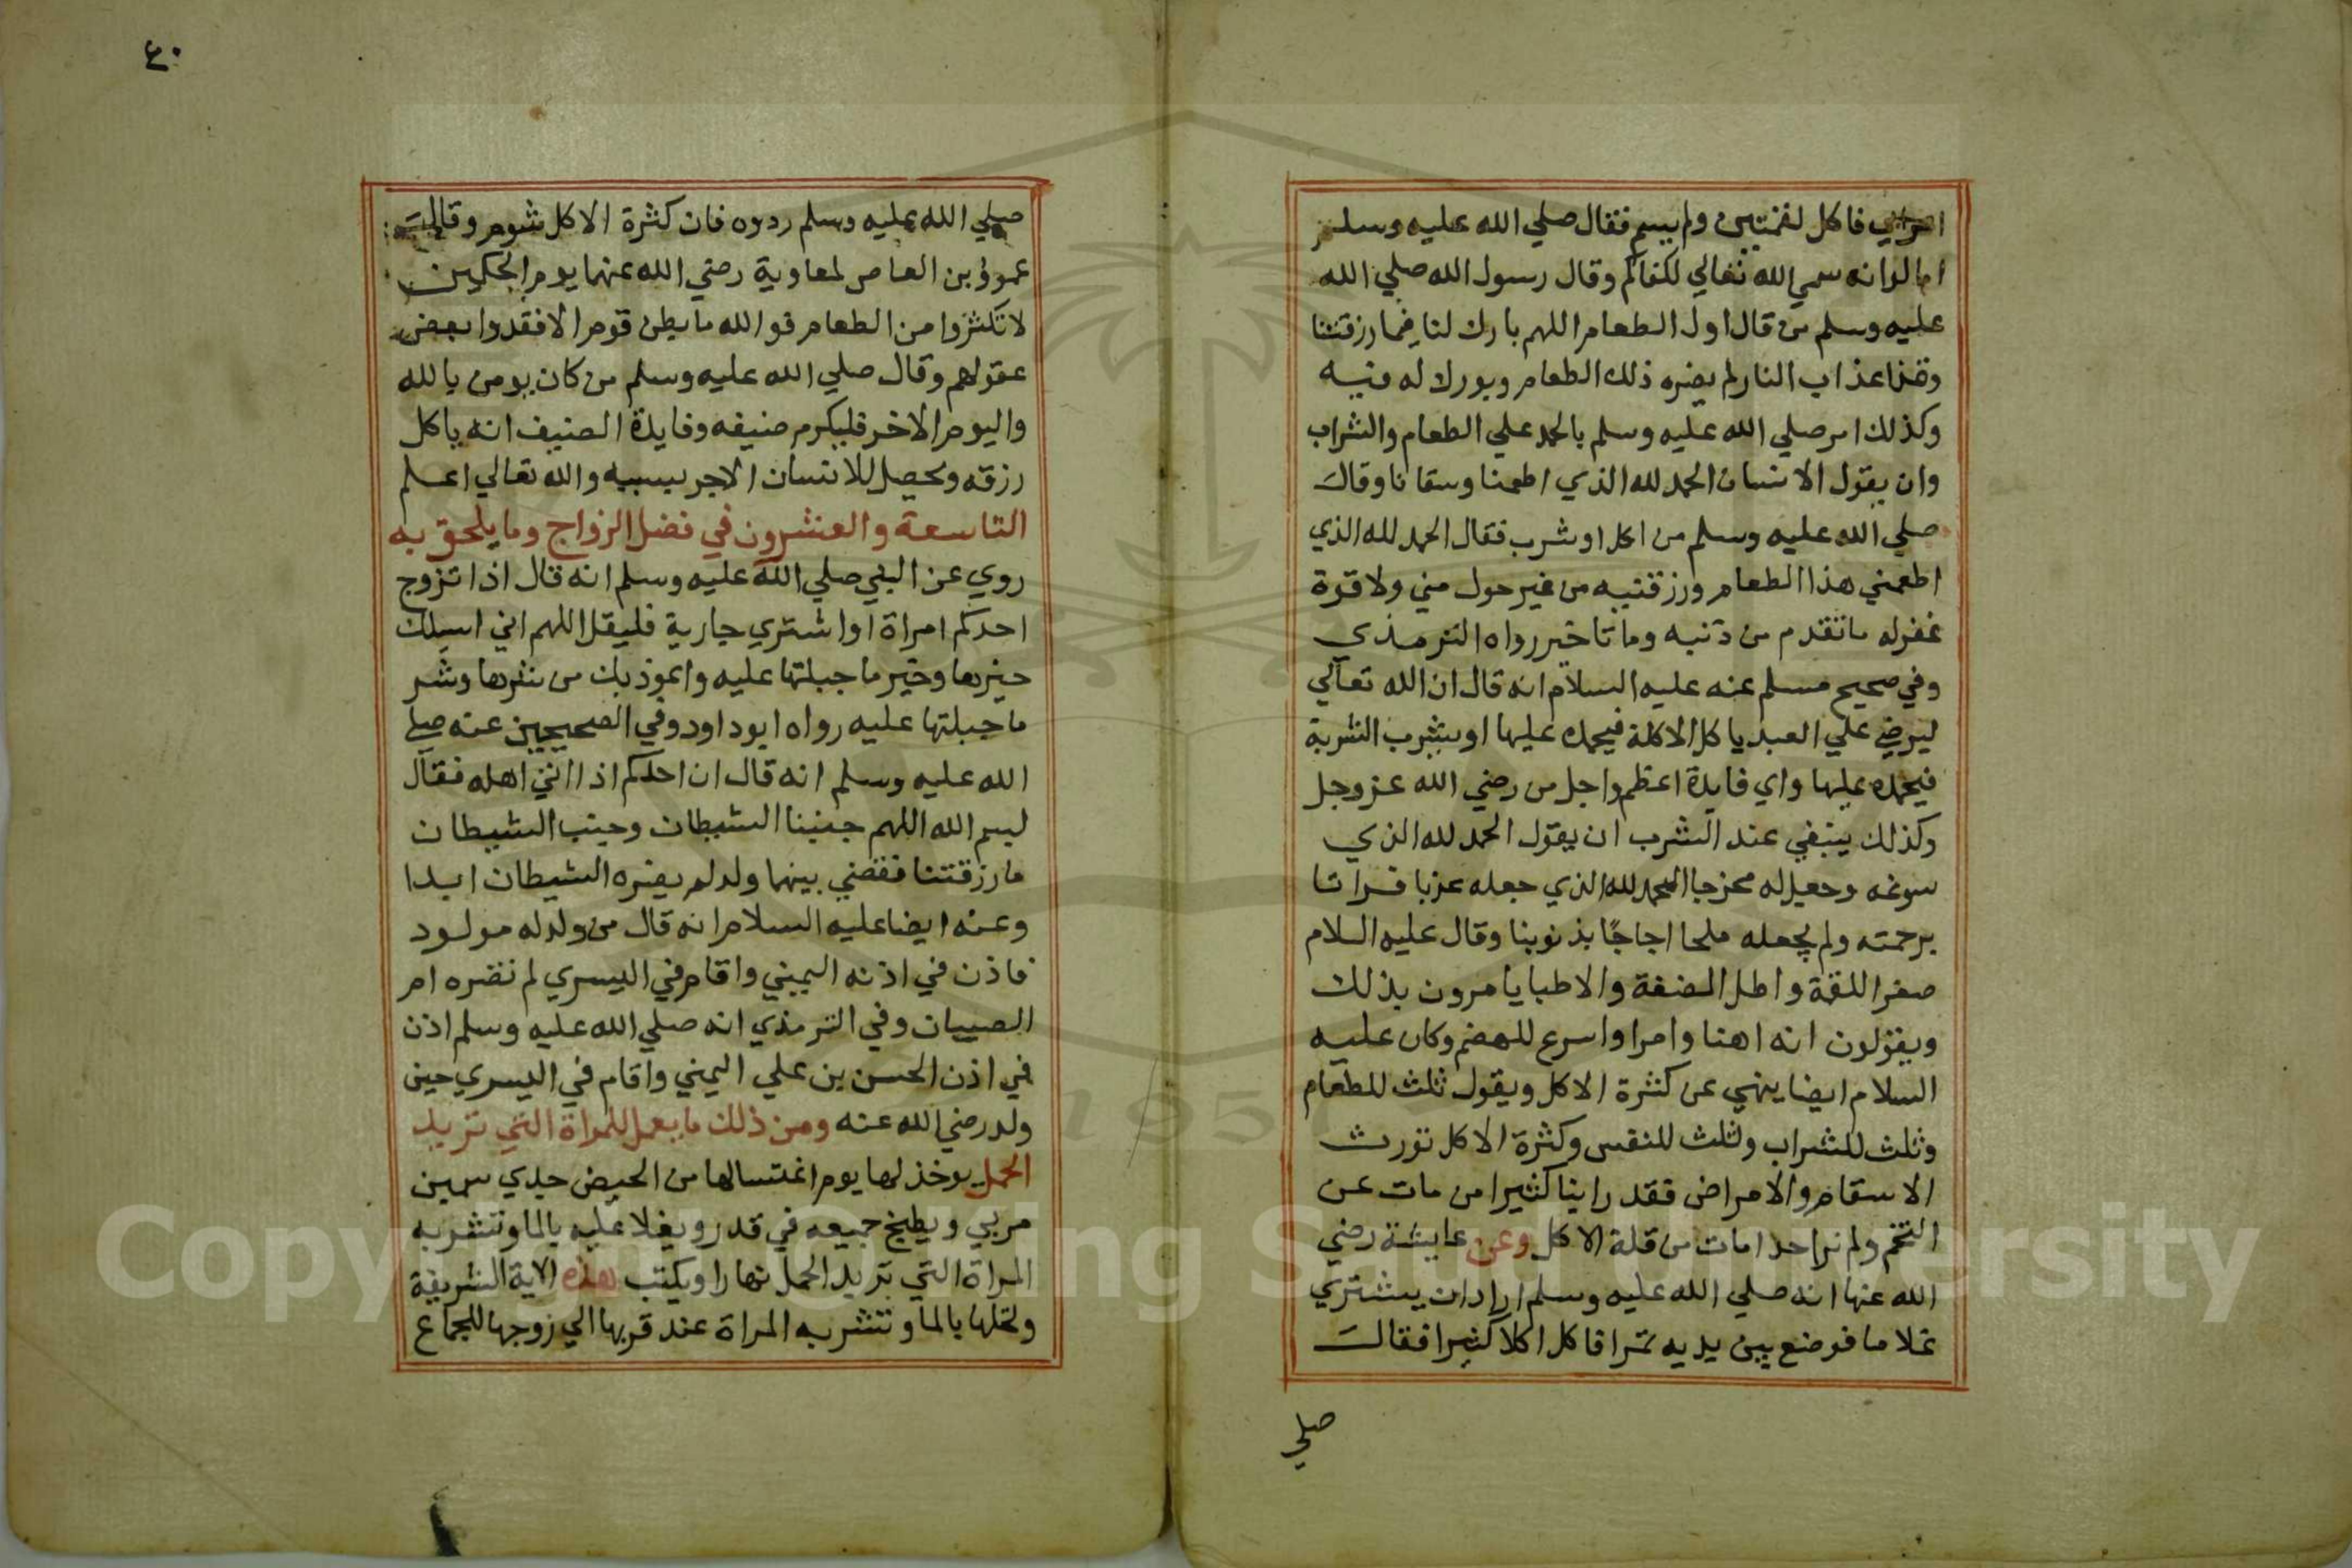 اعرابي فاكل لقمتين ولم يسم فقال صلي الله عليه وسلم
اما لو انه سمي الله تعالي لكفاكم وقال رسول الله صلي الله
عليه وسلم من قال اول الطعام اللهم بارك لنا فيما رزقتنا
وقنا عذاب النار لم يضره ذلك الطعام وبورك له فيه
وكذلك امر صلي الله عليه وسلم بالحمد علي الطعام والشراب
وان يقول الانسان الحمد لله الذي اطعمنا وسقانا وقال
صلي الله عليه وسلم من اكل او شرب فقال الحمد لله الذي
اطعمني هذا الطعام ورزقنيه من غير حول مني ولا قوة
غفر له ما تقدم من ذنبه وما تاخير رواه الترمذي
وفي صحيح مسلم عنه عليه السلام انه قال ان الله تعالي
ليرضي علي العبد ياكل الاكلة فيحمده عليها او يشرب الشربة
فيحمده عليها واي فايدة اعظم واجل من رضي الله عز وجل
وكذلك ينبغي عند الشرب ان يقول الحمد لله الذي
سوغه وجعل له مخرجا الحمد لله الذي جعله عزبا فراتا
برحمته ولم يجعله ملحا اجاجًا بذنوبنا وقال عليه السلام
صغر اللقمة واطل المضغة والاطبا يامرون بذلك
ويقولون انه اهنا وامرا واسرع للهضم وكان عليه
السلام ايضا ينهي عن كثرة الاكل ويقول ثلث للطعام
وثلث للشراب وثلث للنفس وكثرة الاكل تورث
الاسقام والامراض فقد راينا كثيرا من مات عن
التخم ولم نر احدا مات من قلة الاكل وعن عايشة رضي
الله عنها انه صلي الله عليه وسلم اراد ان يشتري
غلاما فوضع بين يديه تمرا فاكل اكلا كثيرا فقال
صلي
٤٠
صلي الله عليه وسلم ردوه فان كثرة الاكل شوم وقال
عمرو بن العاص لمعاوية رضي الله عنهما يوم الحكمين
لا تكثروا من الطعام فو الله ما بطن قوم الا فقدوا بعض
عقولهم وقال صلي الله عليه وسلم من كان يومن بالله
واليوم الاخر فليكرم ضيفه وفايدة الضيف انه ياكل
رزقه ويحصل للانسان الاجر بسببه والله تعالي اعلم
التاسعة والعشرون في فضل الزواج وما يلحق به
روي عن النبي صلي الله عليه وسلم انه قال اذا تزوج
احدكم امراة او اشتري جارية فليقل اللهم اني اسيلك
خيرها وخير ما جبلتها عليه واعوذ بك من شرها وشر
ما جبلتها عليه رواه ابو داود وفي الصحيحين عنه صلي
الله عليه وسلم انه قال ان احدكم اذا اتي اهله فقال
بسم الله اللهم جنبنا الشيطان وجنب الشيطان
ما رزقتنا فقضي بينهما ولد لم يضره الشيطان ابدا
وعنه ايضا عليه السلام انه قال من ولد له مولود
فاذن في اذنه اليمني واقام في اليسري لم تضره ام
الصبيان وفي الترمذي انه صلي الله عليه وسلم اذن
في اذن الحسن بن علي اليمني واقام في اليسري حين
ولد رضي الله عنه ومن ذلك ما يعمل للمراة التي تريد
الحمل يوخذ لها يوم اغتسالها من الحيض جدي سمين
مربي ويطبخ جميعه في قدر ويغلا عليه بالما وتشربه
المراة التي تريد الحمل نهارا ويكتب هذه الاية الشريفة
ولتحلها بالما وتشربه المراة عند قربها الي زوجها للجماع
Copyright © King Saud University
195